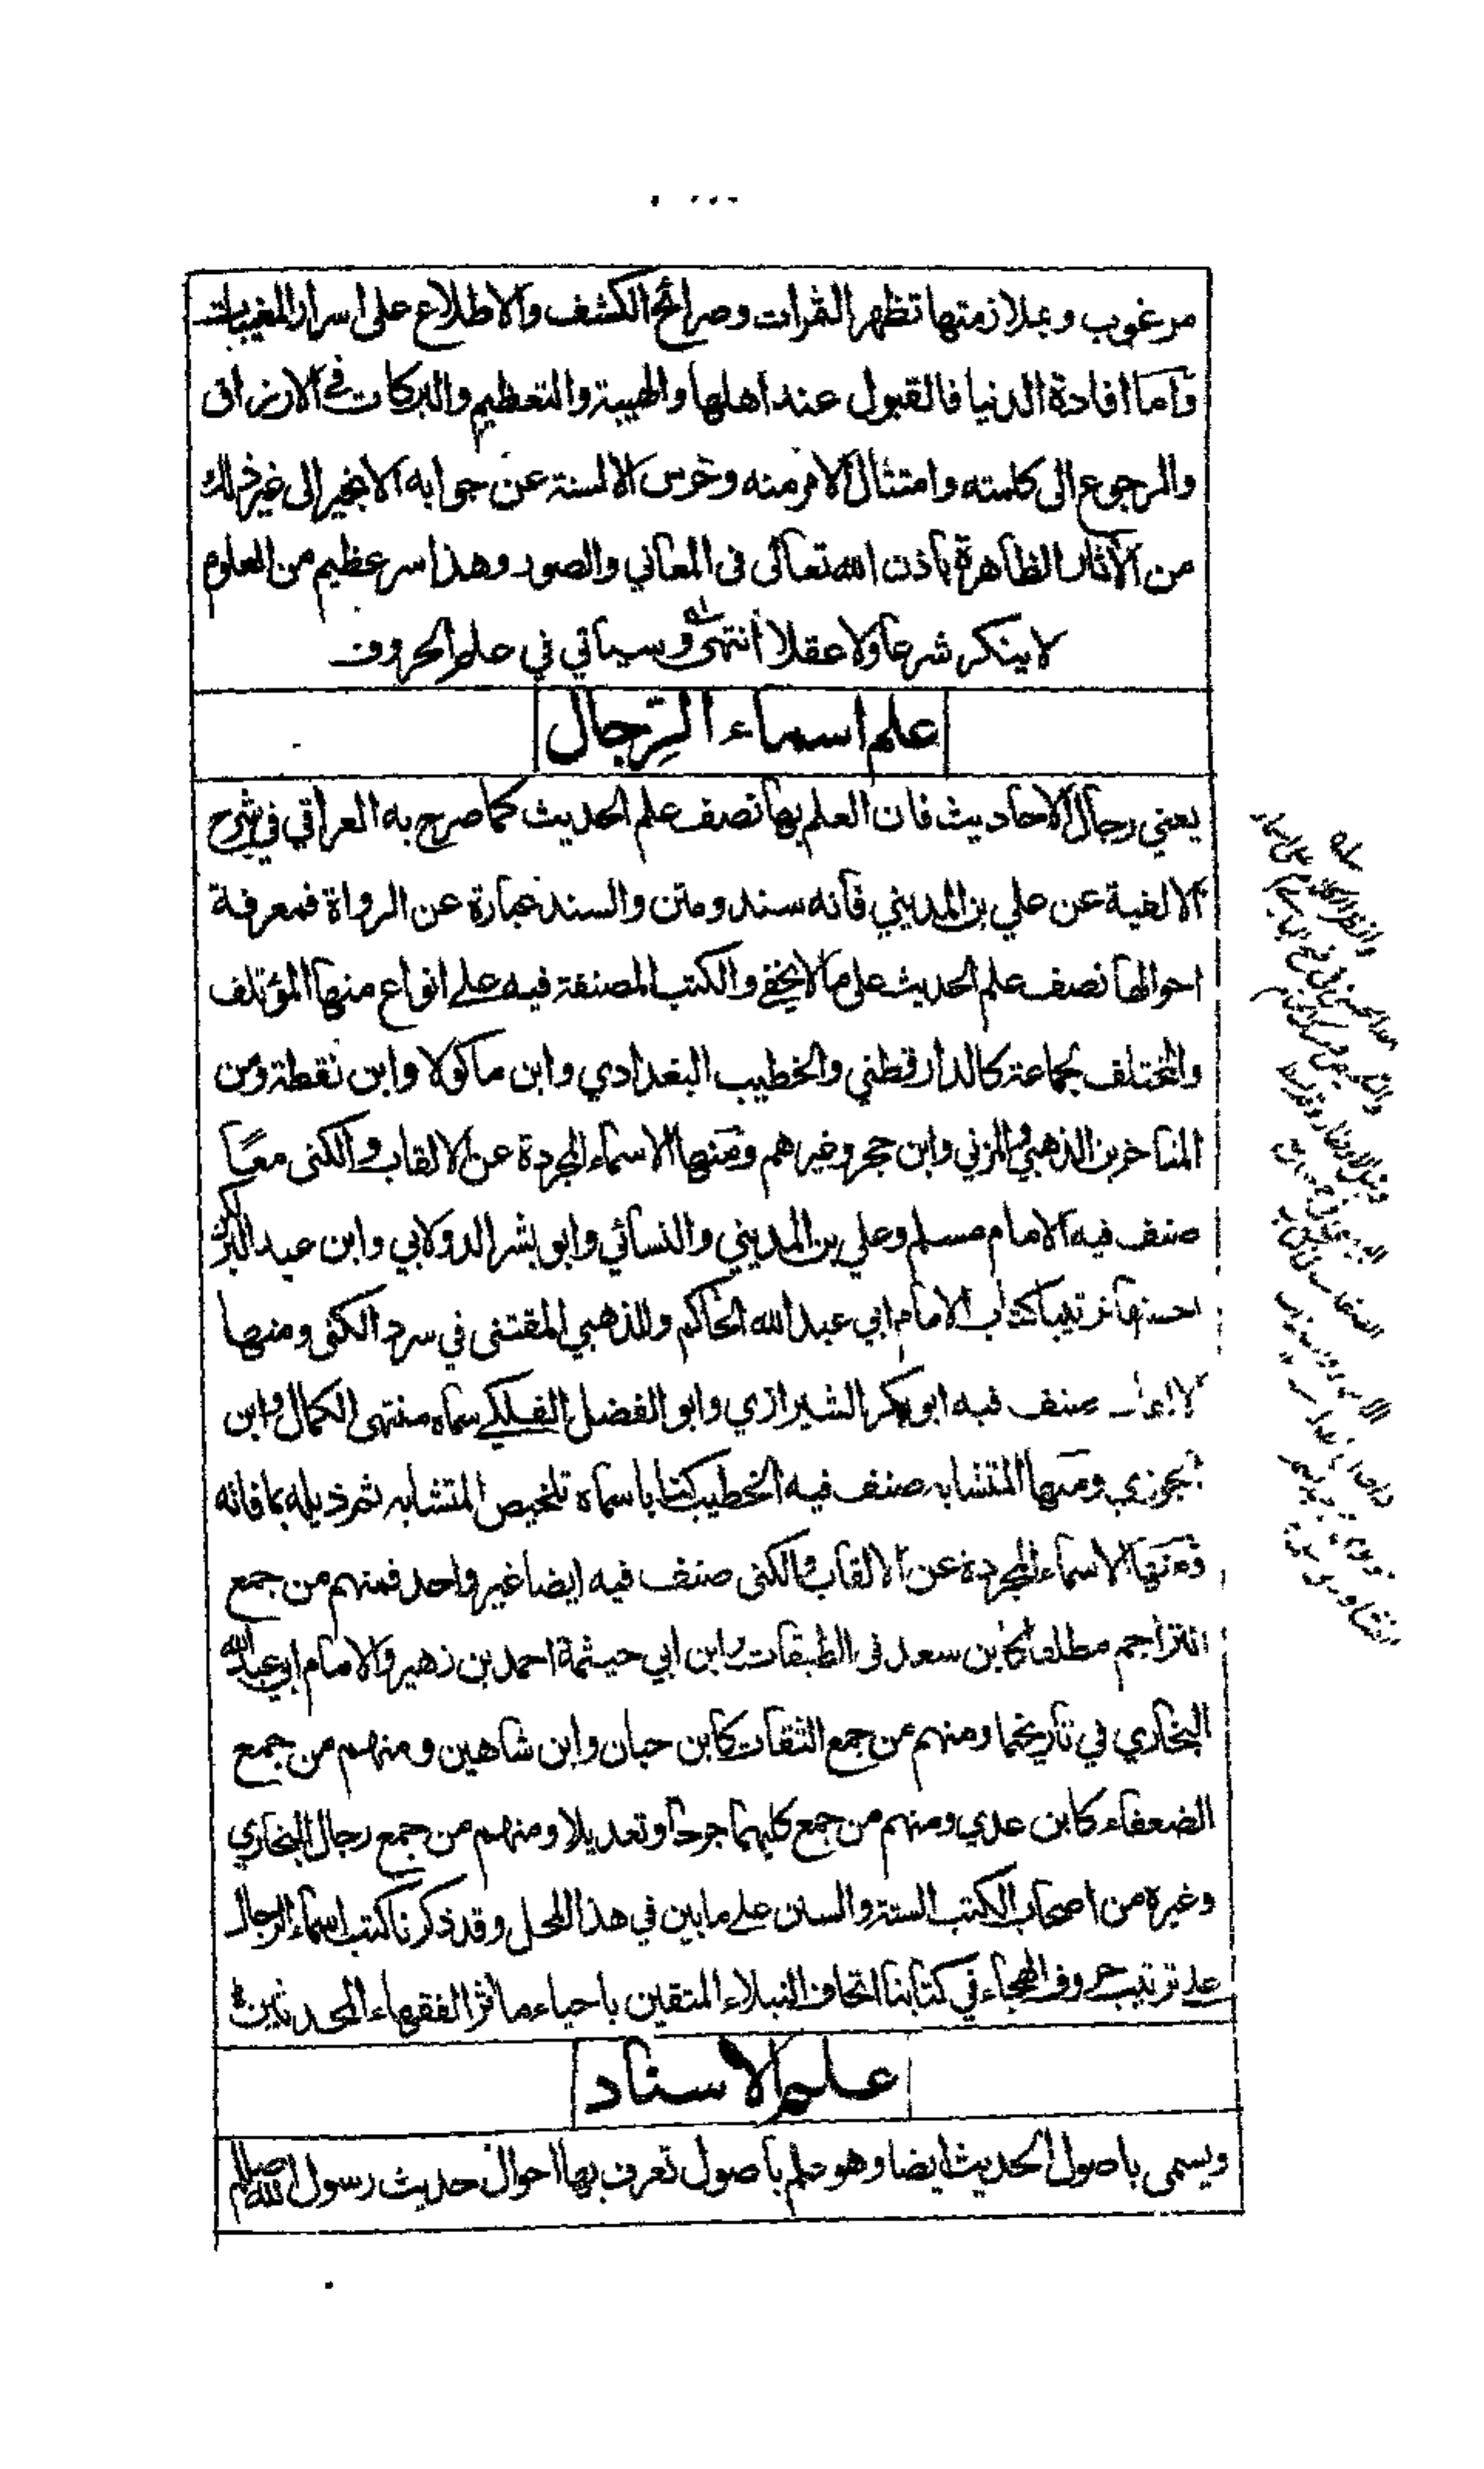 مرغوب وبملازمتها تظهر الثمرات وصرائح الكشف والاطلاع على اسرار المغيبات
واما افادة الدنيا فالقبول عند اهلها والهيبة والتعظيم والبركات في الارزاق
والرجوع الى كلمته وامتثال الامر منه وخرس الالسنة عن جوابه الا بخير الى غير ذلك
من الآثار الظاهرة باذن الله تعالى فى المعاني والصور وهذا سر عظيم من العلوم
لا ينكر شرعا ولا عقلا انتهى وسياتي في علم الحروف
علم اسماء الرجال
يعني رجال الاحاديث فان العلم بها نصف علم الحديث كما صرح به العراقي في شرح
الالفية عن علي بن المديني فانه سند ومتن والسند عبارة عن الرواة فمعرفة
احوالها نصف علم الحديث على ما لا يخفى والكتب المصنفة فيه على انواع منها المؤتلف
والمختلف لجماعة كالدارقطني والخطيب البغدادي وابن ماكولا وابن نقطة ومن
المتاخرين الذهبي والمزني وابن حجر وغيرهم ومنها الاسماء المجردة عن الالقاب والكنى معا
صنف فيه الامام مسلم وعلي بن المديني والنسائي وابو بشر الدولابي وابن عبد البر لكن
احسنها ترتيبا كتاب الامام ابي عبد الله الحاكم وللذهبي المقتنى في سرد الكنى ومنها
الالقاب صنف فيه ابو بكر الشيرازي وابو الفضل الفلكي سماه منتهى الكمال وابن
الجوزي ومنها المتشابه صنف فيه الخطيب كتابا سماه تلخيص المتشابه ثم ذيله بما فاته
ومنها الاسماء المجردة عن الالقاب والكنى صنف فيه ايضا غير واحد فمنهم من جمع
التراجم مطلقا كابن سعد فى الطبقات وابن ابي حيثمة احمد بن زهير والامام ابي عبد الله
البخاري في تاريخهما ومنهم من جمع الثقات كابن حبان وابن شاهين ومنهم من جمع
الضعفاء كابن عدي ومنهم من جمع كليهما جرحا وتعديلا ومنهم من جمع رجال البخاري
وغيره من اصحاب الكتب الستة والسنن على ما بين في هذا المحل وقد ذكرنا كتب اسماء الرجال
على ترتيب حروف الهجاء في كتابنا اتحاف النبلاء المتقين باحياء مآثر الفقهاء المحدثين
علم الاسناد
ويسمى باصول الحديث ايضا وهو علم باصول تعرف بها احوال حديث رسول الله صللم